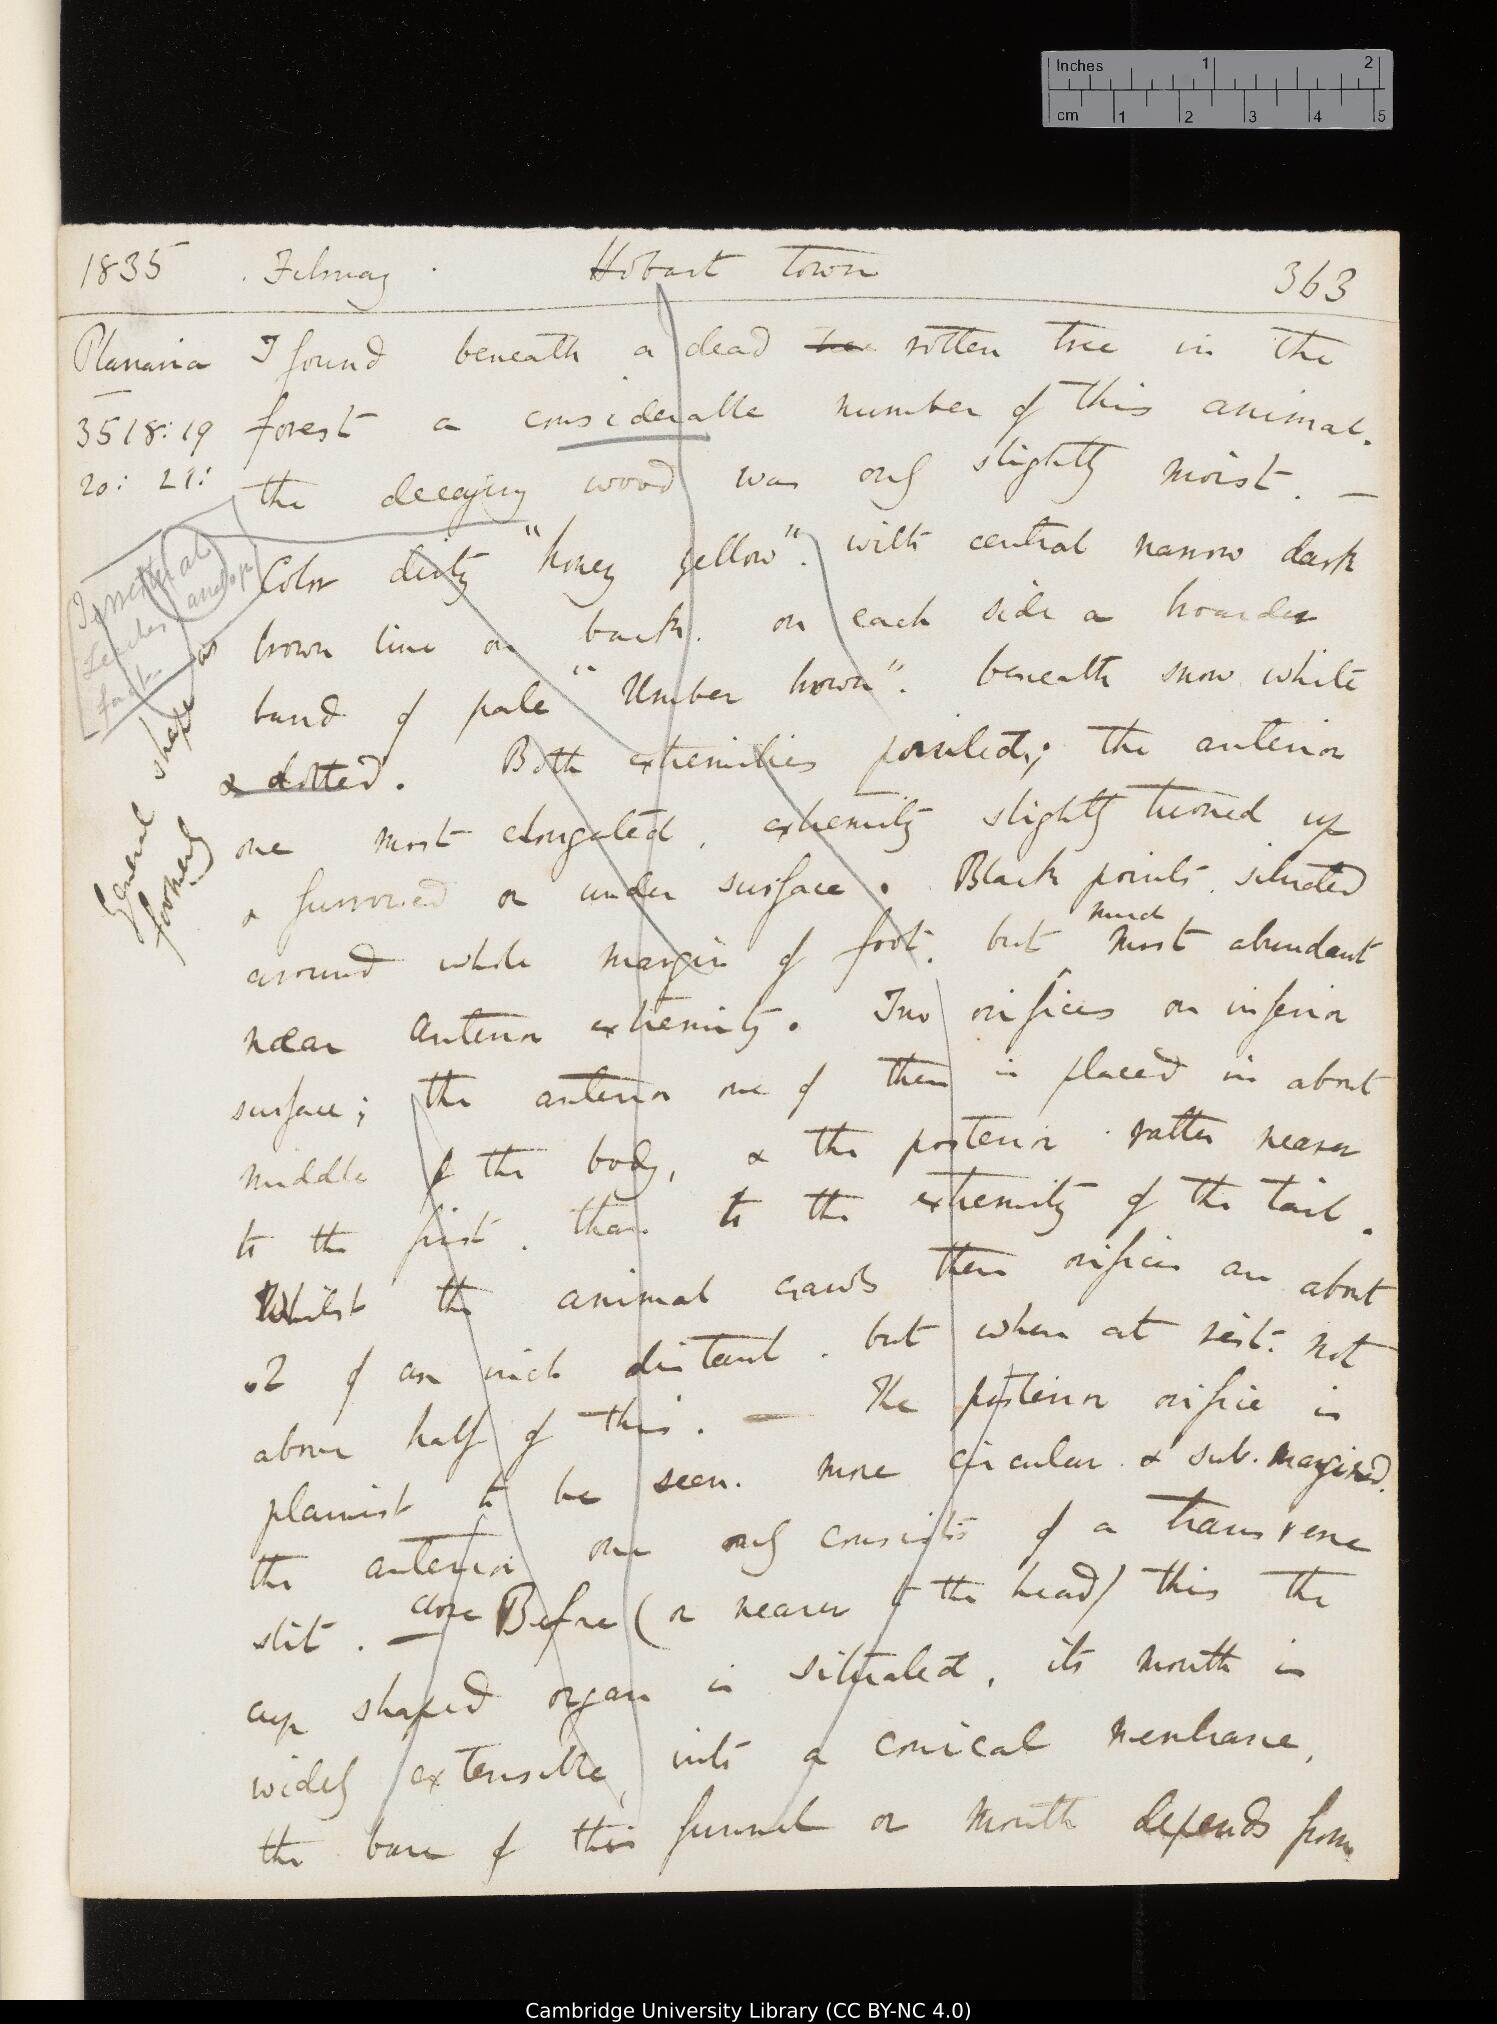 Inches 1 2
cm 1 2 3 4 5
1835 February Hobart town 363
Planaria I found beneath a dead tree rotten tree in the
3518:19 forest a considerable number of this animal.
20: 21: the decaying wood was only slightly moist. —
Color dirty "honey yellow". with central narrow dark
brown line on back. on each side a broarder
band of pale "Umber brown". beneath snow white
& dotted. Both extremities pointed; the anterior
one most elongated, extremity slightly turned up
& furrowed on under surface. Black points situated
around whole margin of foot, but much most abundant
near anterior extremity. Two orifices on inferior
surface; the anterior one of them is placed in about
middle of the body, & the posterior rather nearer
to the first. than to the extremity of the tail.
Whilst the animal crawls these orifices are about
.2 of an inch distant. but when at rest. not
above half of this. — The posterior orifice is
plainest to be seen. more circular & sub-margined.
the anterior one only consists of a transverse
slit. — close Before (or nearer to the head) this the
cup shaped organ is situated, its mouth is
widely extensible, into a conical membrane,
the base of this funnel or mouth depends from
Terrestrial
Leeches
fact
General shape as
formerly
Cambridge University Library (CC BY-NC 4.0)